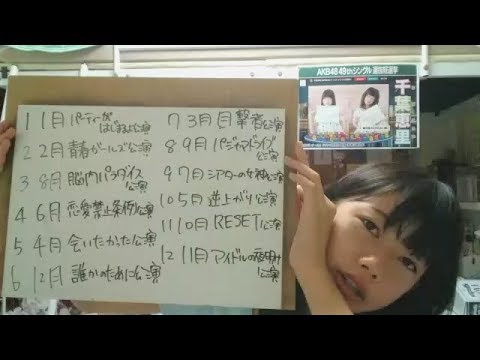 1 1月 パーティーが
はじまるよ公演
2 2月 青春ガールズ公演
3 8月 脳内パラダイス
公演
4 6月 恋愛禁止条例公演
5 4月 会いたかった公演
6 12月 誰かのために公演
7 3月 目撃者公演
8 9月 パジャマドライブ
公演
9 7月 シアターの女神公演
10 5月 逆上がり公演
11 10月 RESET公演
12 11月 アイドルの夜明け
公演
AKB48 49thシングル 選抜総選挙
千葉恵里